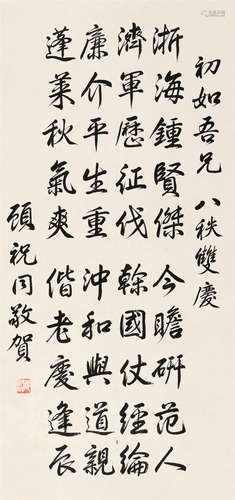 初如吾兄八秩雙慶
浙海鍾賢傑今瞻研范人
濟軍歷征伐榦國仗經綸
廉介平生重沖和與道親
蓬萊秋氣爽偕老慶逢辰
顧祝同敬賀